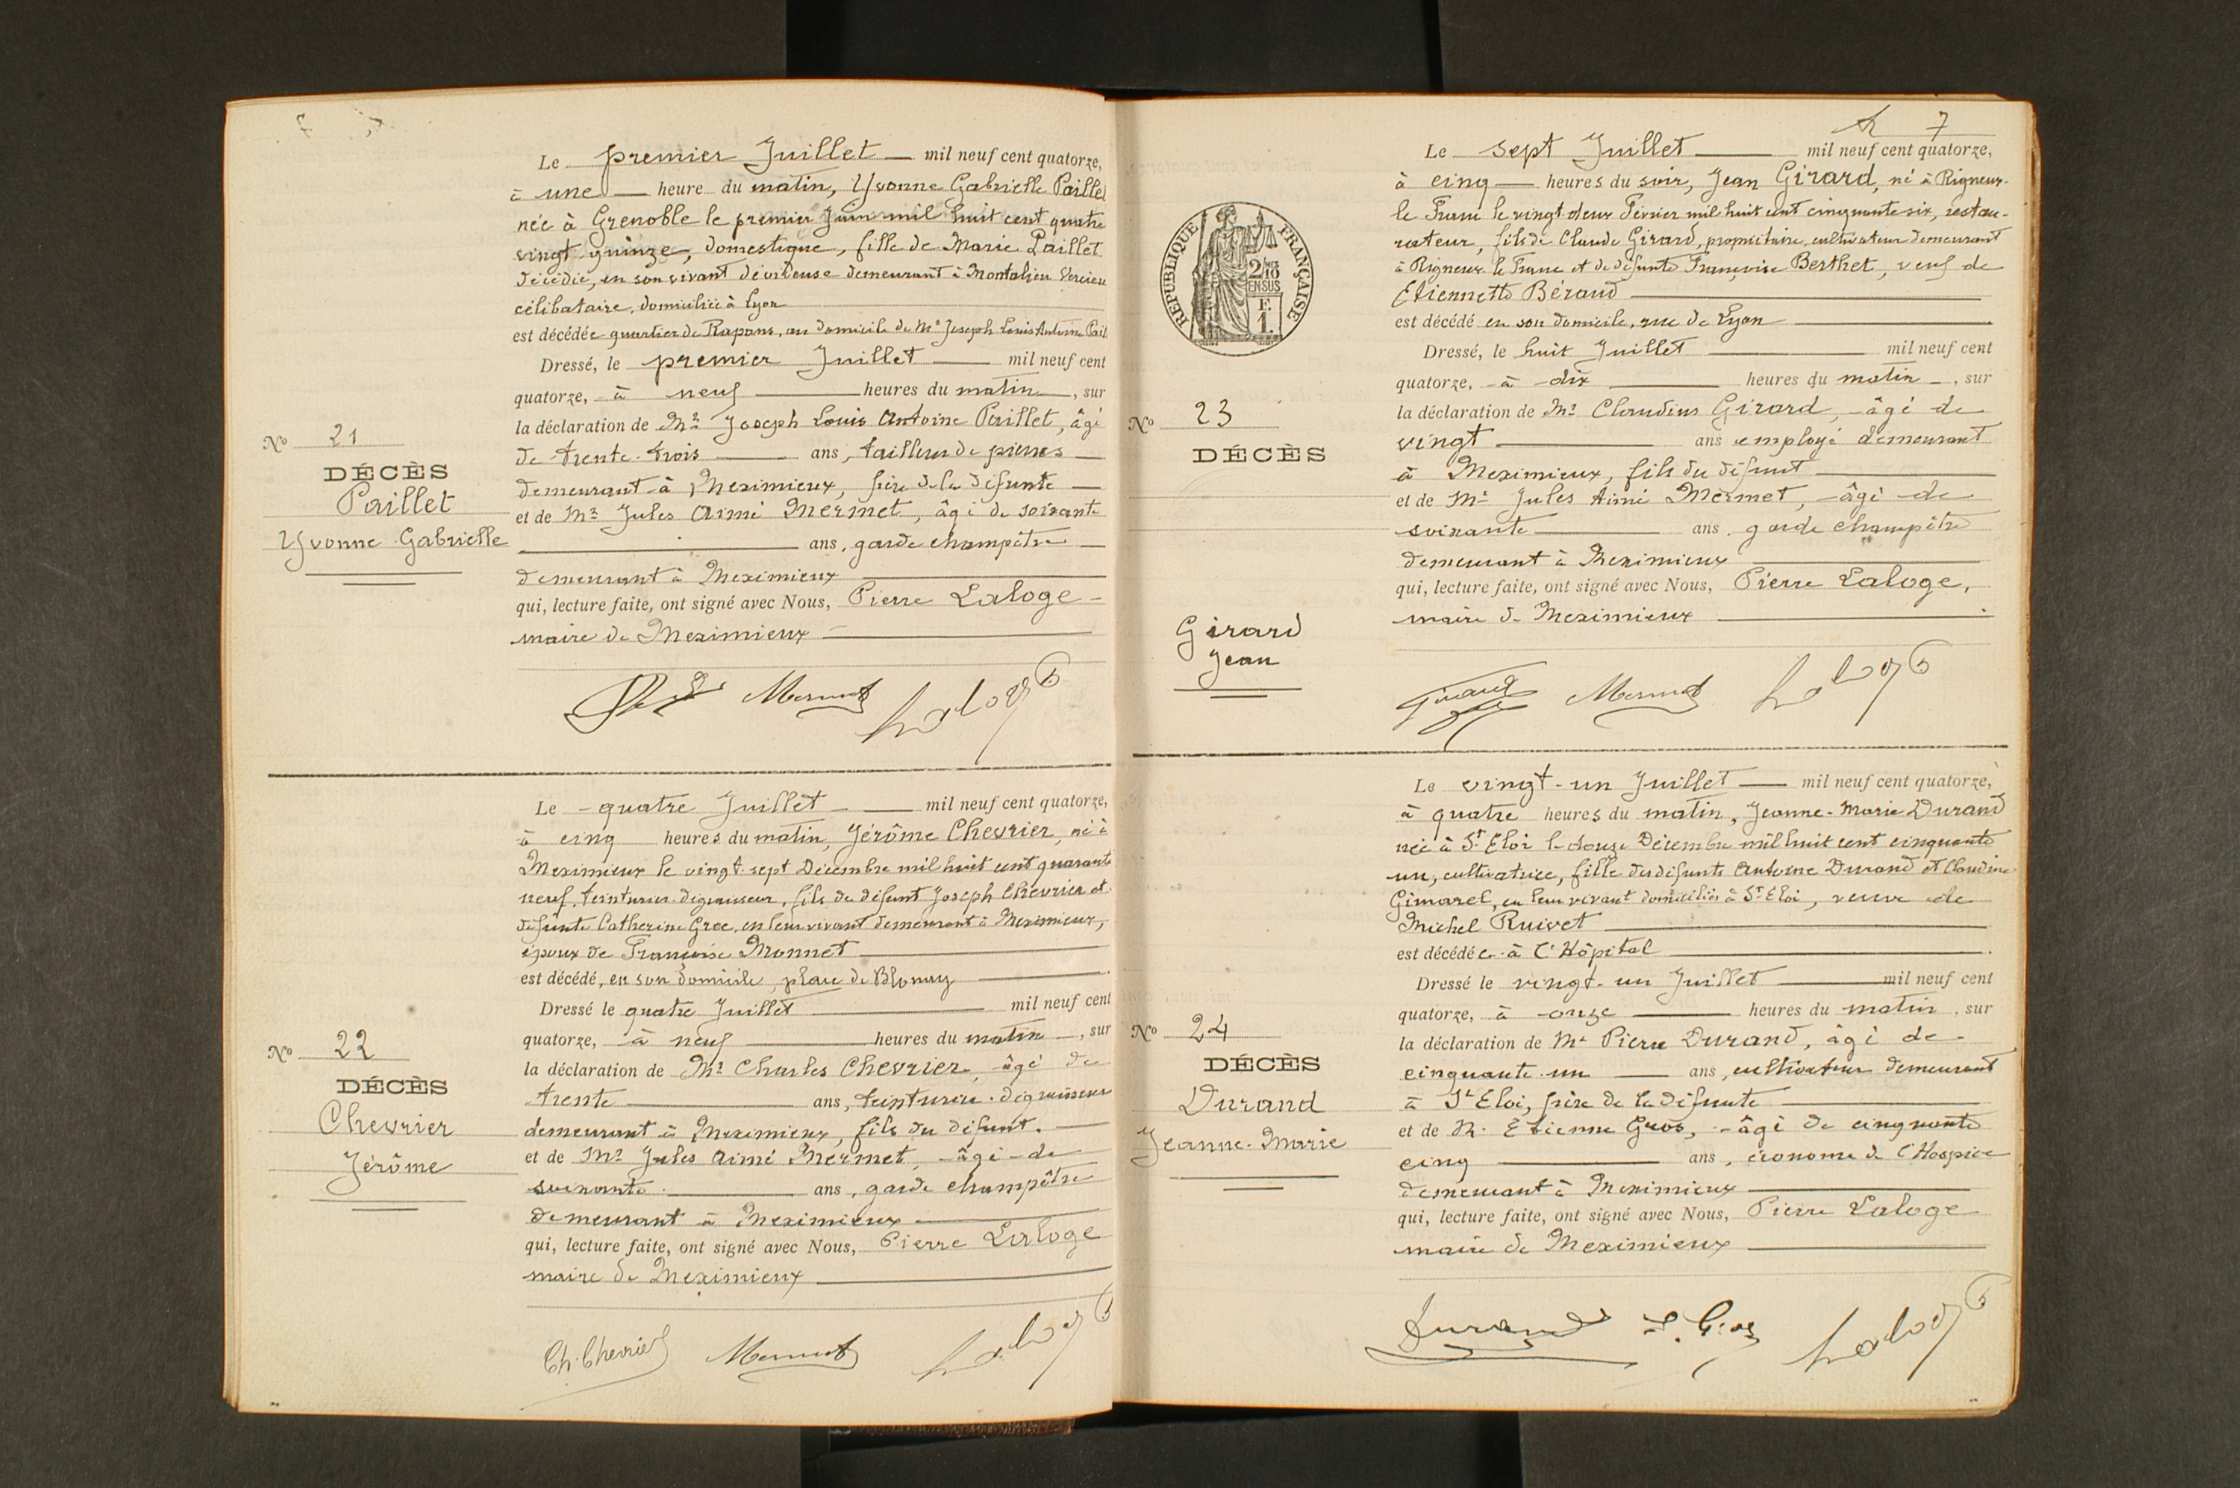 Le premier Juillet mil neuf cent quatorze,
à une heure du matin, Yvonne Gabrielle Paillet
née à Grenoble le premier Juin mil huit cent quatre
vingt quinze, domestique, fille de Marie Paillet
décédée, en son vivant dévideuse demeurant à Montalieu Vercieu
célibataire, domiciliée à Lyon
est décédée quartier de Rapans, au domicile de Mr Joseph Louis Antoine Pail
Dressé, le premier Juillet mil neuf cent
quatorze, à neuf heures du matin, sur
la déclaration de Mr Joseph Louis Antoine Paillet, âgé
de trente-trois ans, tailleur de pierres
demeurant à Meximieux, frère de la défunte
et de Mr Jules Aimé Mermet, âgé de soixante
ans, garde champêtre
demeurant à Meximieux
qui, lecture faite, ont signé avec Nous, Pierre Laloge
maire de Meximieux
No 21
DÉCÈS
Paillet
Yvonne Gabrielle
Mermet Laloge
Le quatre Juillet mil neuf cent quatorze,
à cinq heures du matin, Jérôme Chevrier, né à
Meximieux le vingt-sept Décembre mil huit cent quarante
neuf, teinturier-dégraisseur, fils de défunt Joseph Chevrier et
défunte Catherine Groc, en leur vivant demeurant à Meximieux,
époux de Françoise Monnet
est décédé, en son domicile, place de Blonay
Dressé le quatre Juillet mil neuf cent
quatorze, à neuf heures du matin, sur
la déclaration de Mr Charles Chevrier, âgé de
trente ans, teinturier-dégraisseur
demeurant à Meximieux, fils du défunt.
et de Mr Jules Aimé Mermet, âgé de
soixante ans, garde champêtre
demeurant à Meximieux
qui, lecture faite, ont signé avec Nous, Pierre Laloge
maire de Meximieux
No 22
DÉCÈS
Chevrier
Jérôme
Ch. Chevrier Mermet Laloge
7
Le sept Juillet mil neuf cent quatorze,
à cinq heures du soir, Jean Girard, né à Rigneux-
le Franc le vingt deux Février mil huit cent cinquante six, restau-
rateur, fils de Claude Girard, propriétaire cultivateur demeurant
à Rigneux le Franc et de défunte Françoise Berthet, veuf de
Etiennette Béraud
est décédé en son domicile, rue de Lyon
Dressé, le huit Juillet mil neuf cent
quatorze, à dix heures du matin, sur
la déclaration de Mr Claudius Girard, âgé de
vingt ans employé demeurant
à Meximieux, fils du défunt
et de Mr Jules Aimé Mermet, âgé de
soixante ans, garde champêtre
demeurant à Meximieux
qui, lecture faite, ont signé avec Nous, Pierre Laloge,
maire de Meximieux
RÉPUBLIQUE FRANÇAISE
2/10
EN SUS
F.
1.
No 23
DÉCÈS
Girard
Jean
Girard Mermet Laloge
Le vingt-un Juillet mil neuf cent quatorze,
à quatre heures du matin, Jeanne-Marie Durand
née à St Eloi le douze Décembre mil huit cent cinquante
un, cultivatrice, fille des défunts Antoine Durand et Claudine
Gimarel, en leur vivant domiciliés à St Eloi, veuve de
Michel Ruivet
est décédée à l'Hôpital
Dressé le vingt-un Juillet mil neuf cent
quatorze, à onze heures du matin, sur
la déclaration de Mr Pierre Durand, âgé de
cinquante-un ans, cultivateur demeurant
à St Eloi, frère de la défunte
et de M. Étienne Gros, âgé de cinquante
cinq ans, économe de l'Hospice
demeurant à Meximieux
qui, lecture faite, ont signé avec Nous, Pierre Laloge
maire de Meximieux
No 24
DÉCÈS
Durand
Jeanne-Marie
Durand E. Gros Laloge